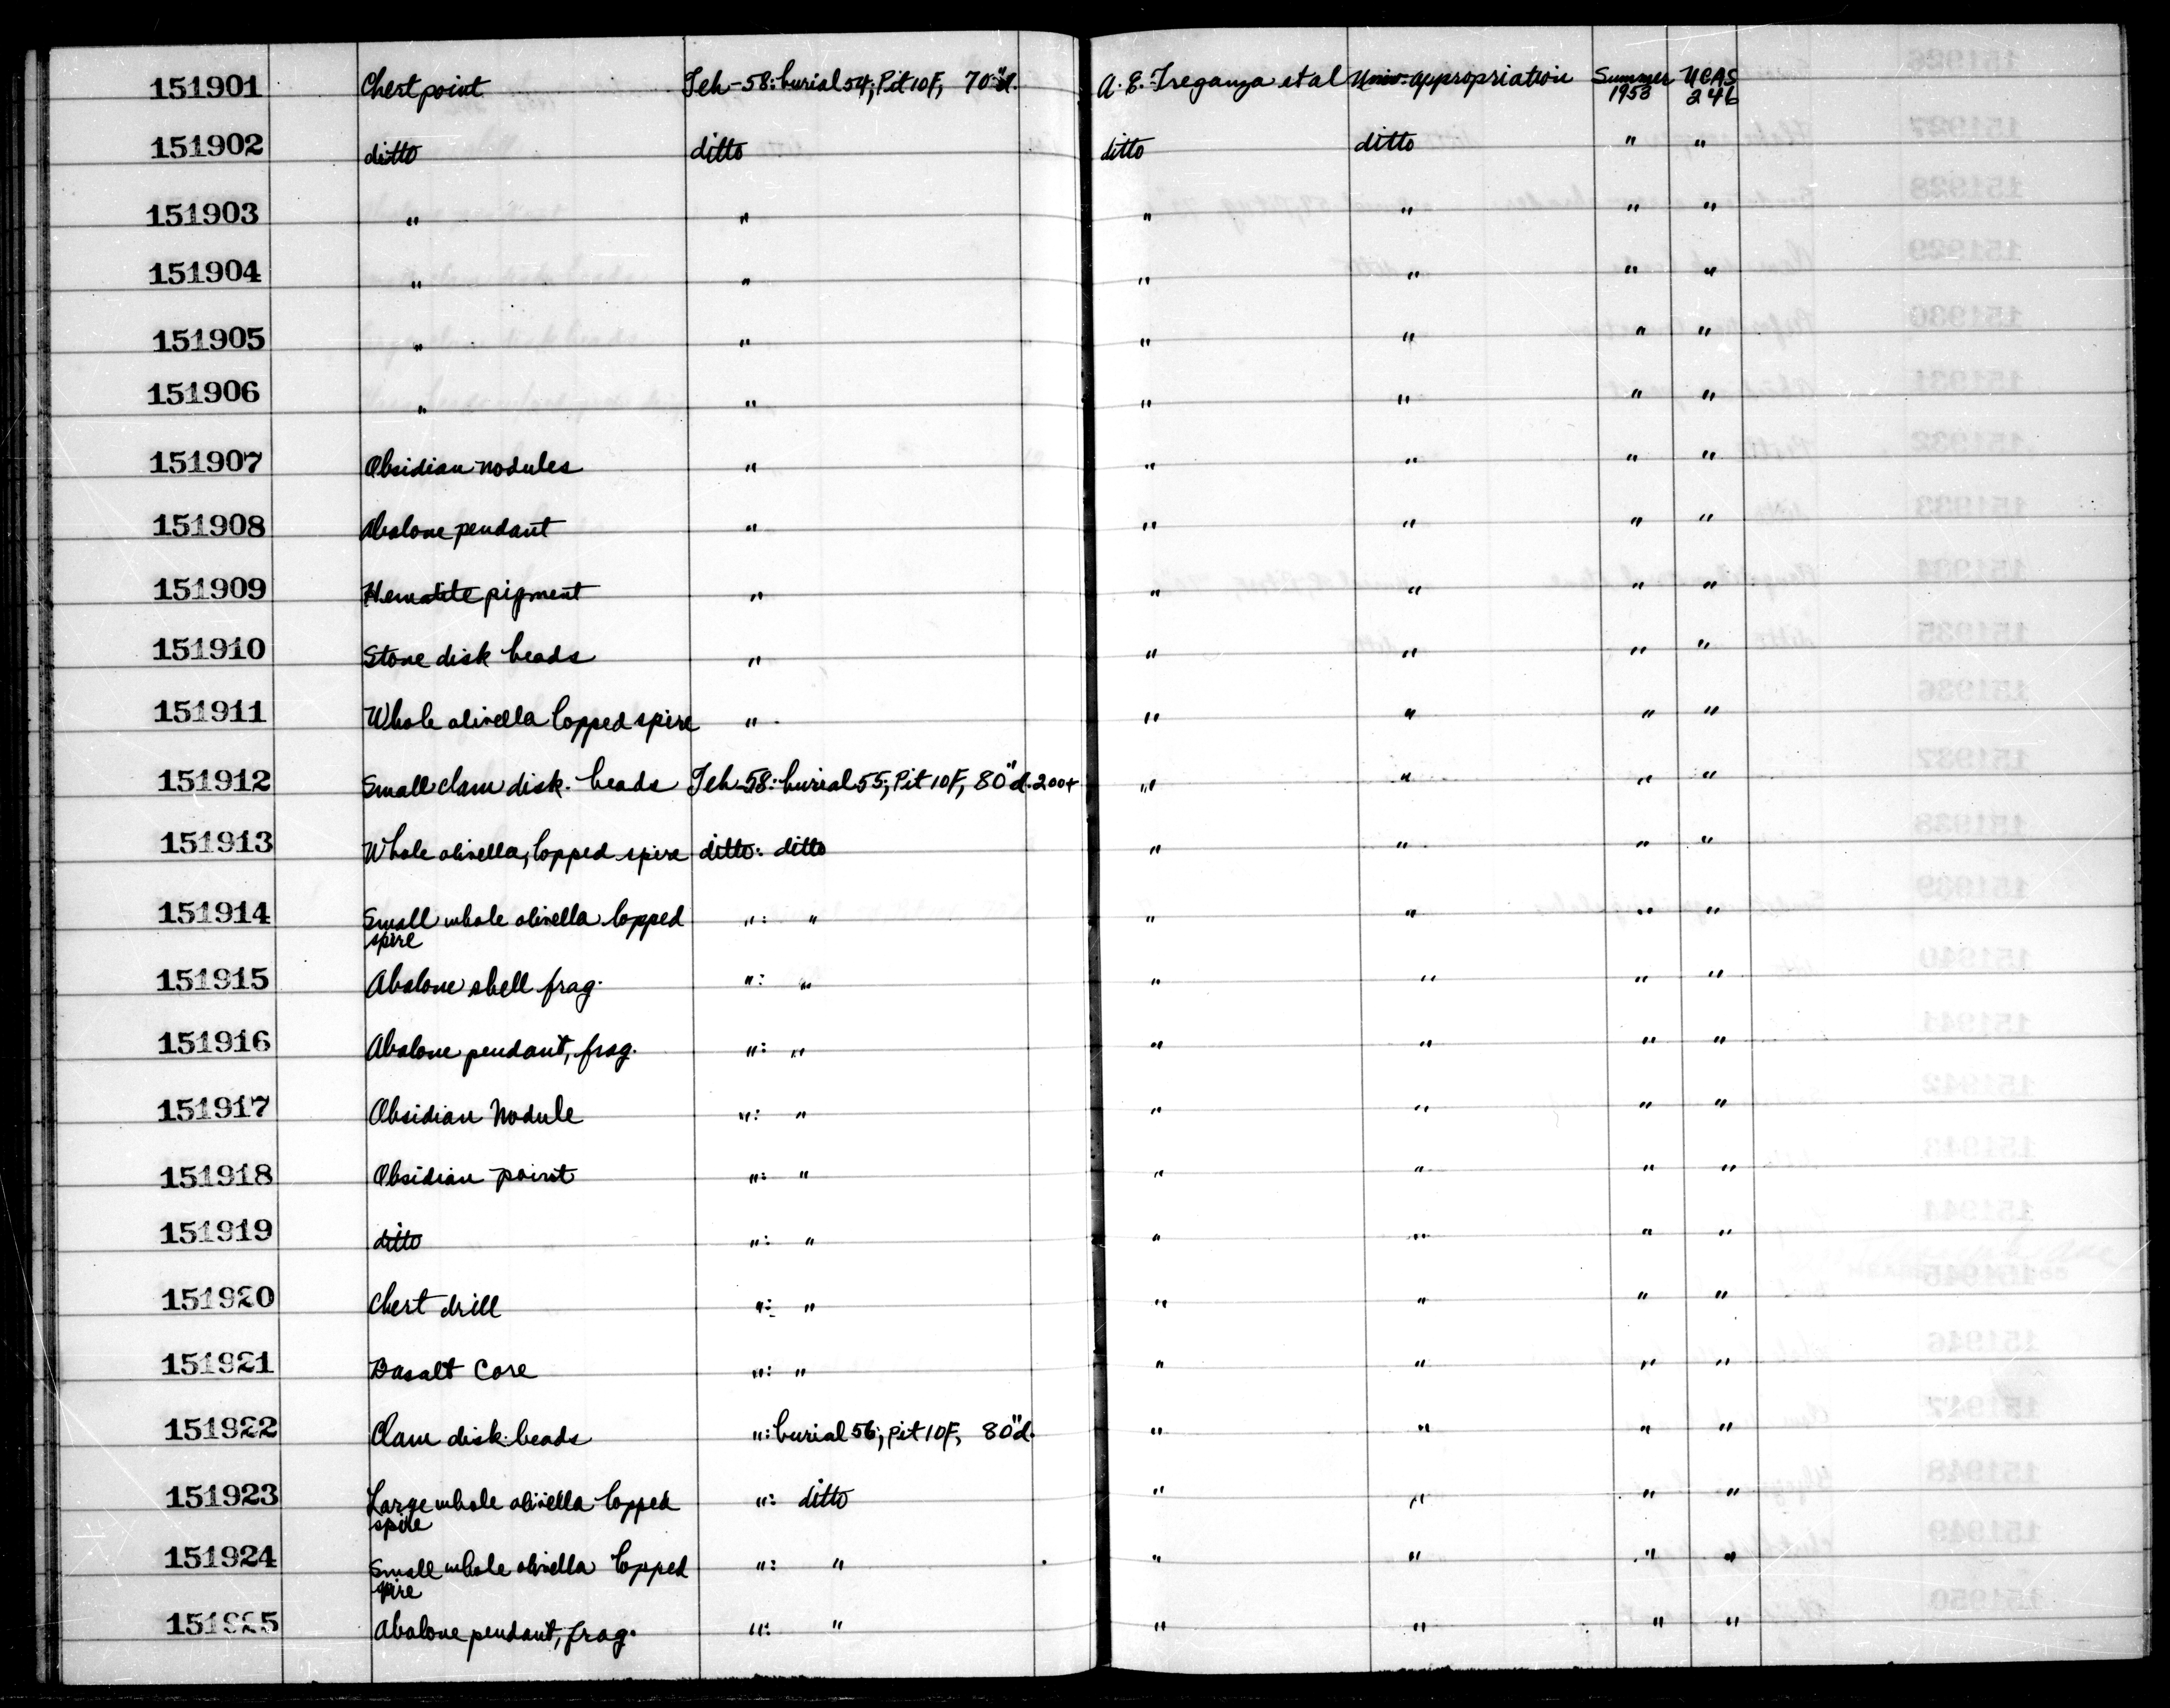 151901 Chert point Teh-58: burial 54; Pit 10F, 70"d. A. E. Treganza et al Univ. appropriation Summer 1953 UCAS 246
151902 ditto ditto ditto ditto " "
151903 " " " " " "
151904 " " " " " "
151905 " " " " " "
151906 " " " " " "
151907 Obsidian nodules " " " " "
151908 Abalone pendant " " " " "
151909 Hematite pigment " " " " "
151910 Stone disk beads " " " " "
151911 Whole olivella lopped spire " " " " "
151912 Small clam disk beads Teh-58: burial 55; Pit 10F, 80"d. 200+ " " " "
151913 Whole olivella, lopped spire ditto: ditto " " " "
151914 Small whole olivella lopped spire ": " " " " "
151915 Abalone shell frag. ": " " " " "
151916 Abalone pendant, frag. ": " " " " "
151917 Obsidian Nodule ": " " " " "
151918 Obsidian point ": " " " " "
151919 ditto ": " " " " "
151920 Chert drill ": " " " " "
151921 Basalt Core ": " " " " "
151922 Clam disk beads ": burial 56; Pit 10F, 80"d. " " " "
151923 Large whole olivella lopped spire ": ditto " " " "
151924 Small whole olivella lopped spire ": " " " " "
151925 Abalone pendant, frag. ": " " " " "